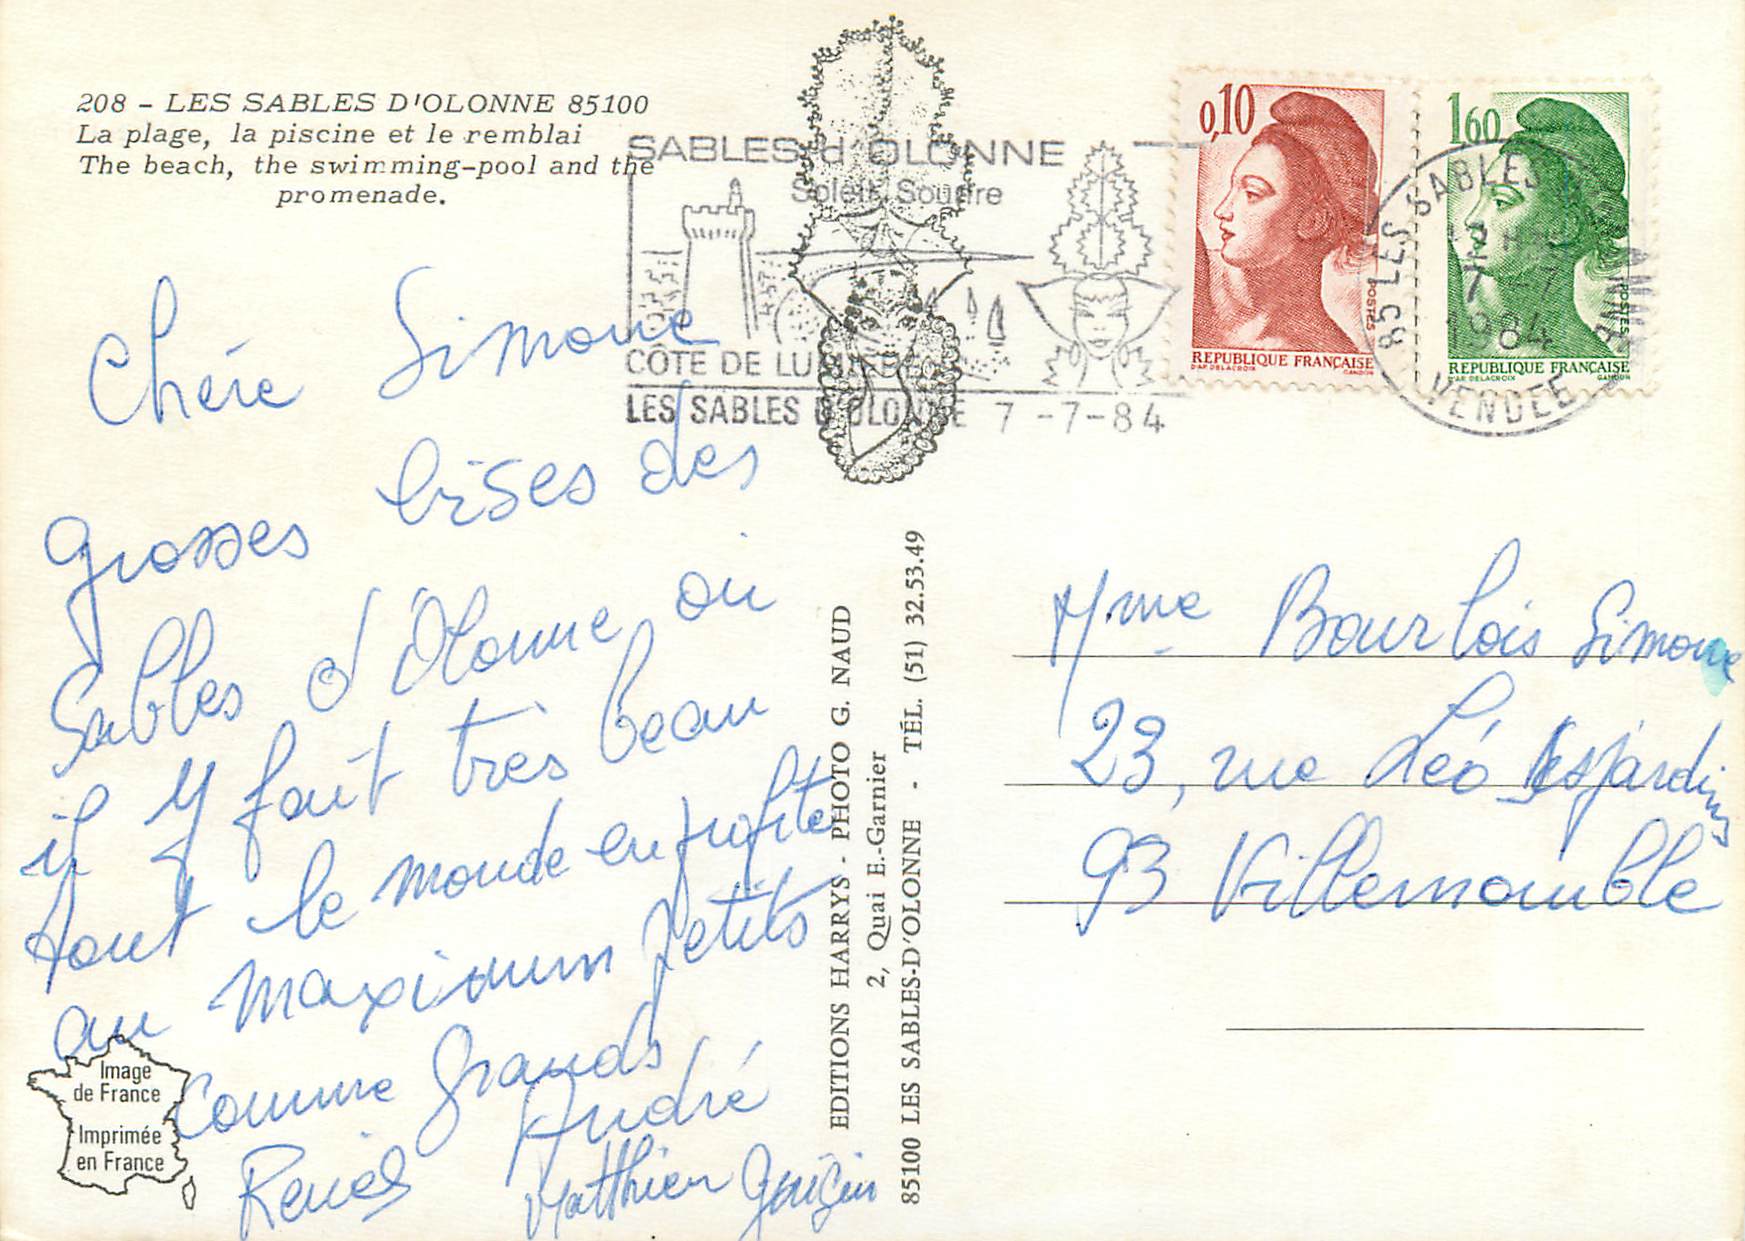 208 - LES SABLES D'OLONNE 85100
La plage, la piscine et le remblai
The beach, the swimming-pool and the
promenade.
SABLES d'OLONNE
Soleil Sourire
CÔTE DE LUMIERE
LES SABLES D'OLONNE 7 -7-84
0,10
POSTES
REPUBLIQUE FRANÇAISE
D'AP. DELACROIX GANDON
1,60
POSTES
REPUBLIQUE FRANÇAISE
D'AP. DELACROIX GANDON
85 LES SABLES D'OLONNE
7 -7
1984
VENDEE
Chére Simone
grosses bises des
Sables d'Olonne où
il y fait très beau
tout le monde en profite
au maximum petits
comme grands
André
Renée
Matthieu
EDITIONS HARRYS - PHOTO G. NAUD
2, Quai E.-Garnier
85100 LES SABLES-D'OLONNE - TÉL. (51) 32.53.49
Mme Bourlois Simone
23, rue Léo Desjardins
93 Villemomble
Image
de France
Imprimée
en France